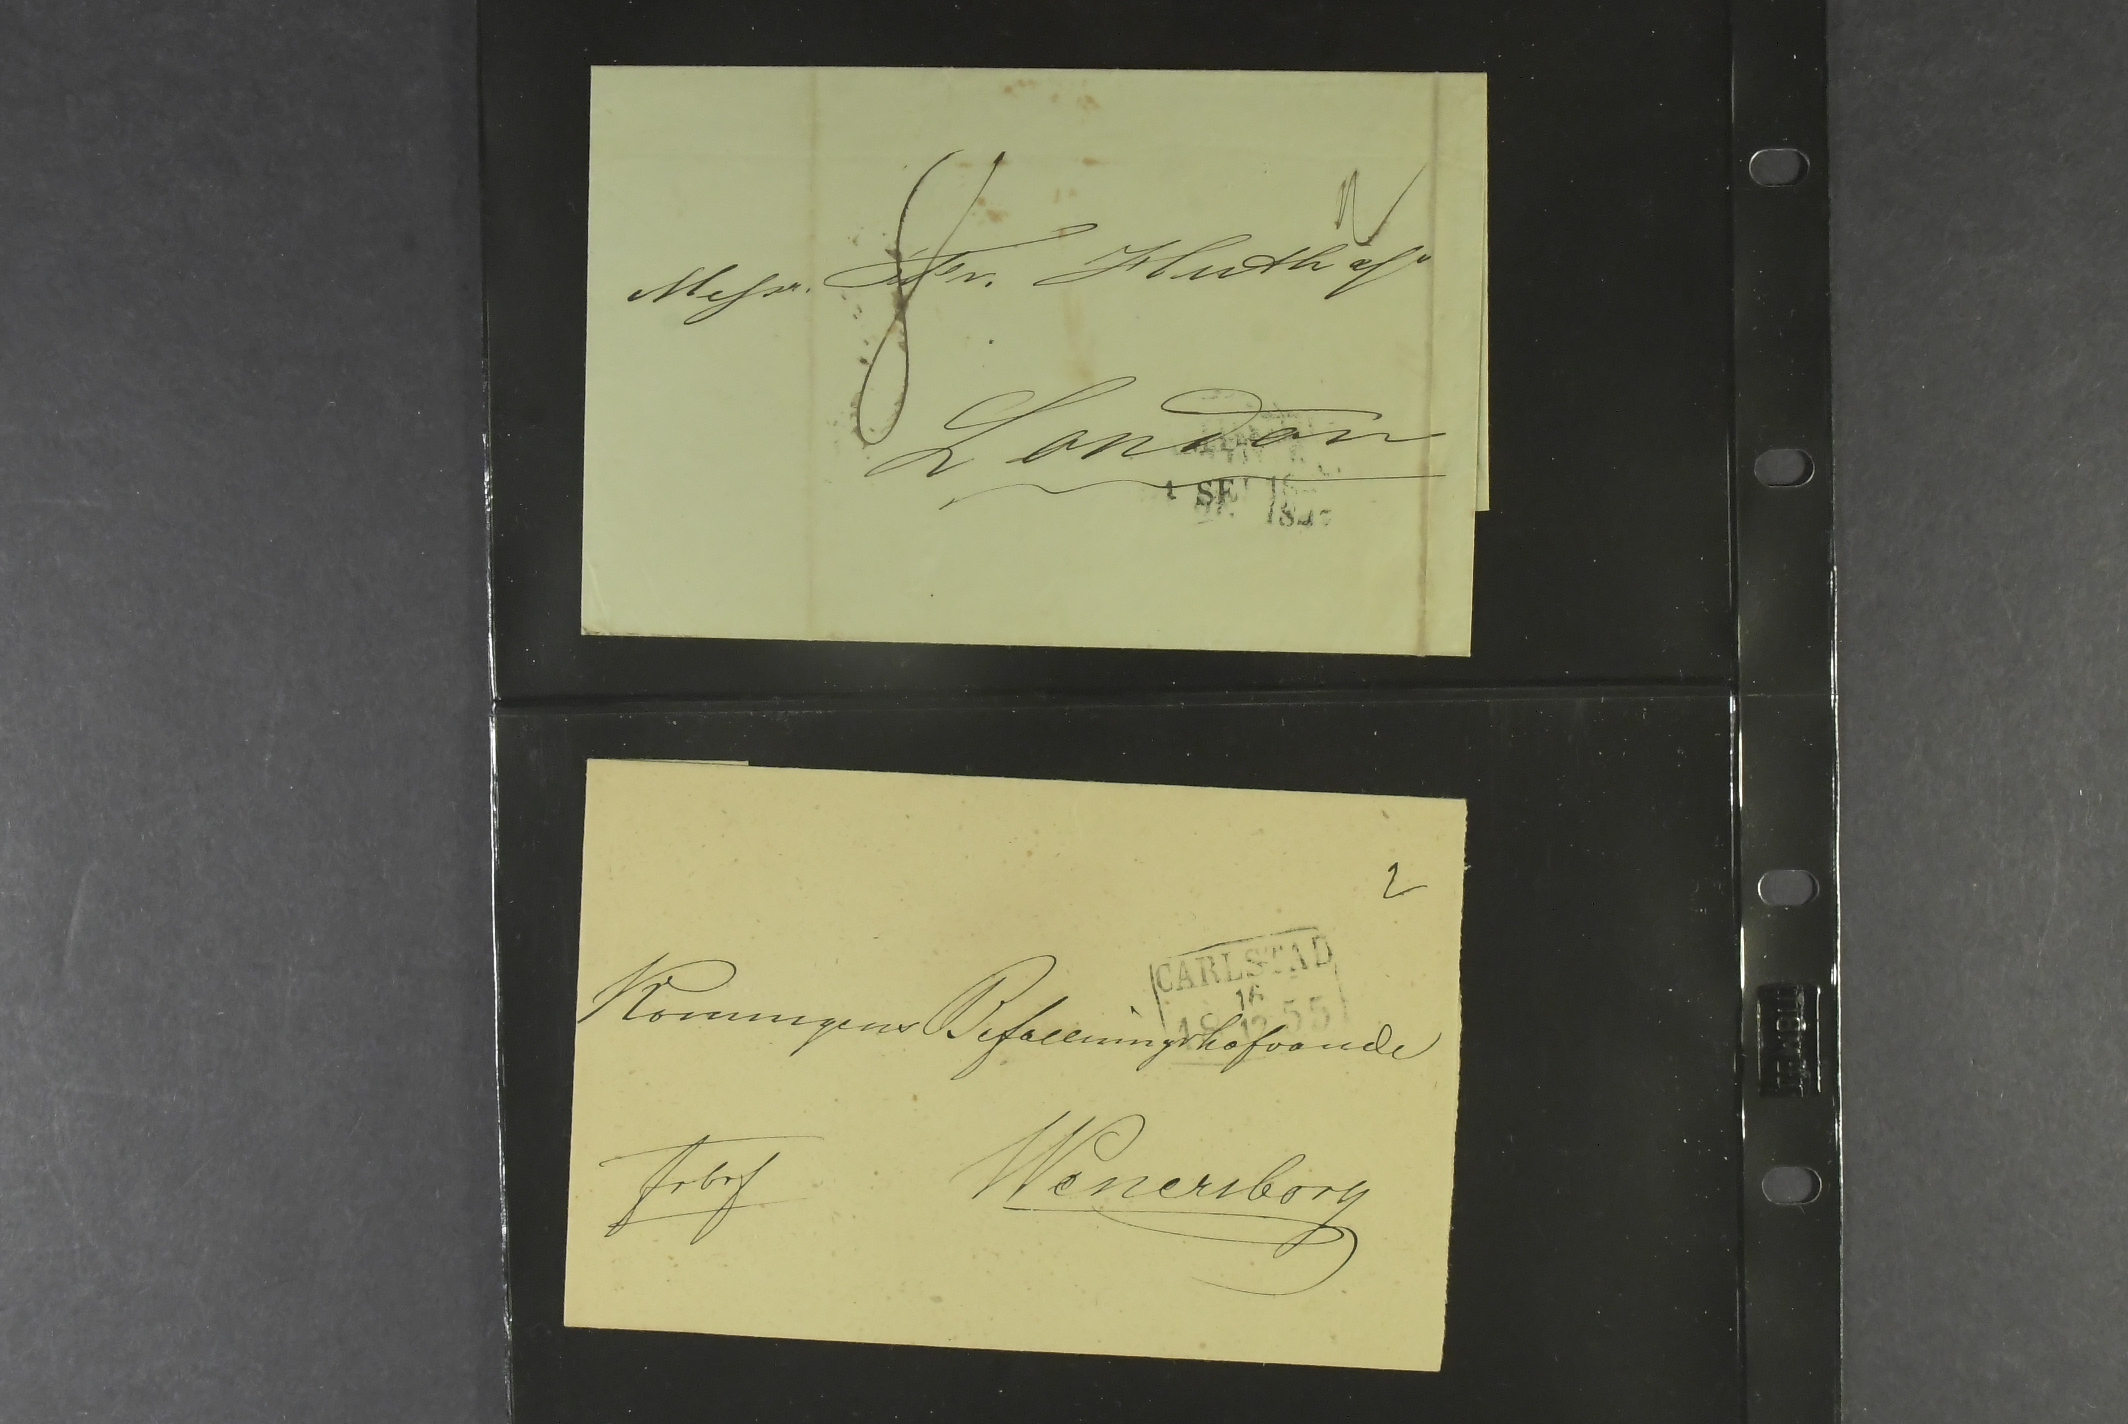 Messrs. Fr. Huth & Co
London
SE
2
CARLSTAD
16
18 12 55
Konungens Befallningshafvande
frbrf
Wenersborg